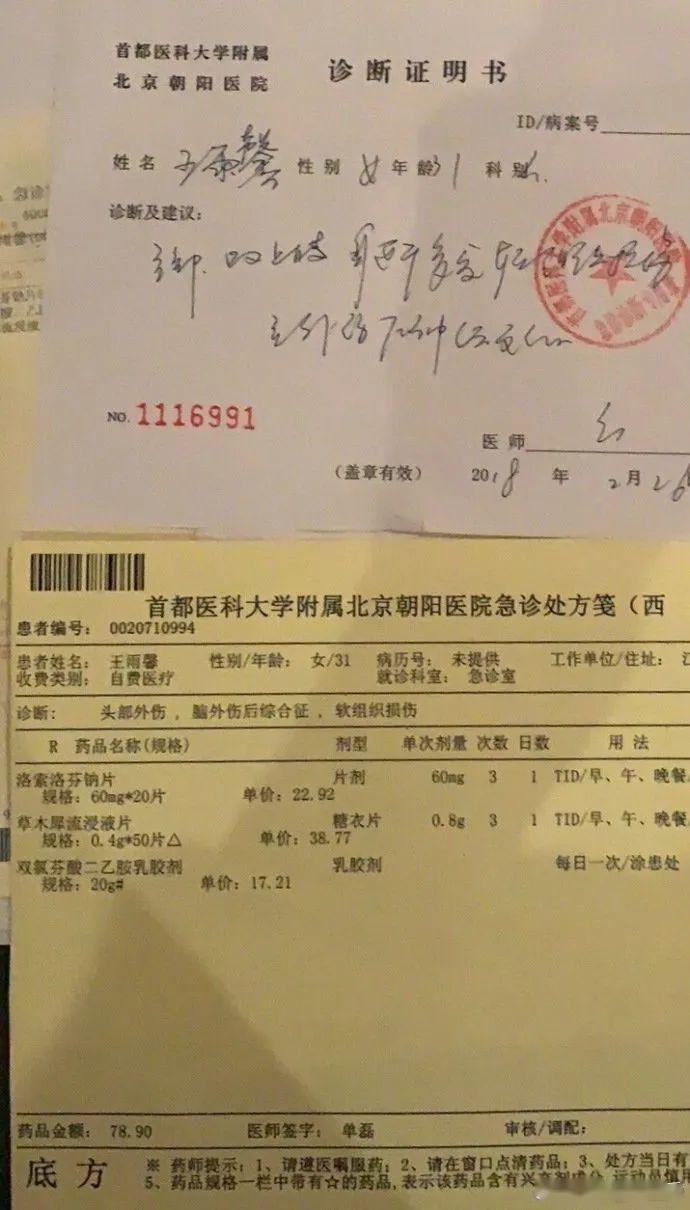 首都医科大学附属
北京朝阳医院
诊断证明书
ID/病案号
姓名 王雨馨 性别 女 年龄 31 科别
诊断及建议：
NO. 1116991
医师
（盖章有效） 2018 年 2月 26
首都医科大学附属北京朝阳医院急诊处方笺（西
患者编号： 0020710994
患者姓名： 王雨馨 性别/年龄： 女/31 病历号： 未提供 工作单位/住址：
收费类别： 自费医疗 就诊科室： 急诊室
诊断： 头部外伤 ，脑外伤后综合征 ，软组织损伤
R 药品名称(规格) 剂型 单次剂量 次数 日数 用 法
洛索洛芬钠片 片剂 60mg 3 1 TID/早、午、晚餐
规格：60mg*20片 单价：22.92
草木犀流浸液片 糖衣片 0.8g 3 1 TID/早、午、晚餐
规格：0.4g*50片△ 单价：38.77
双氯芬酸二乙胺乳胶剂 乳胶剂 每日一次/涂患处
规格：20g# 单价：17.21
药品金额： 78.90 医师签字： 单磊 审核/调配：
底方 ※ 药师提示：1、请遵医嘱服药；2、请在窗口点清药品；3、处方当日有
5、药品规格一栏中带有☆的药品，表示该药品含有兴奋剂成分，运动员慎用